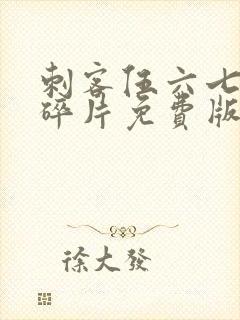 刺客伍六七
碎片免費版
徐大發